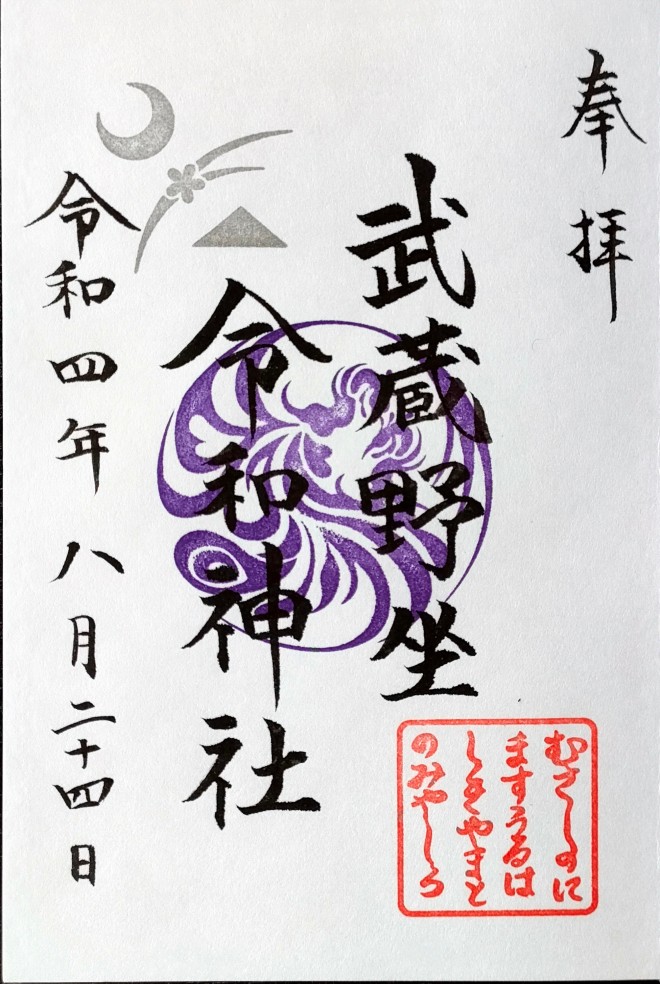 奉拝
武蔵野坐
令和神社
令和四年八月二十四日
むさしのに
ますうるは
しきやまと
のみやしろ